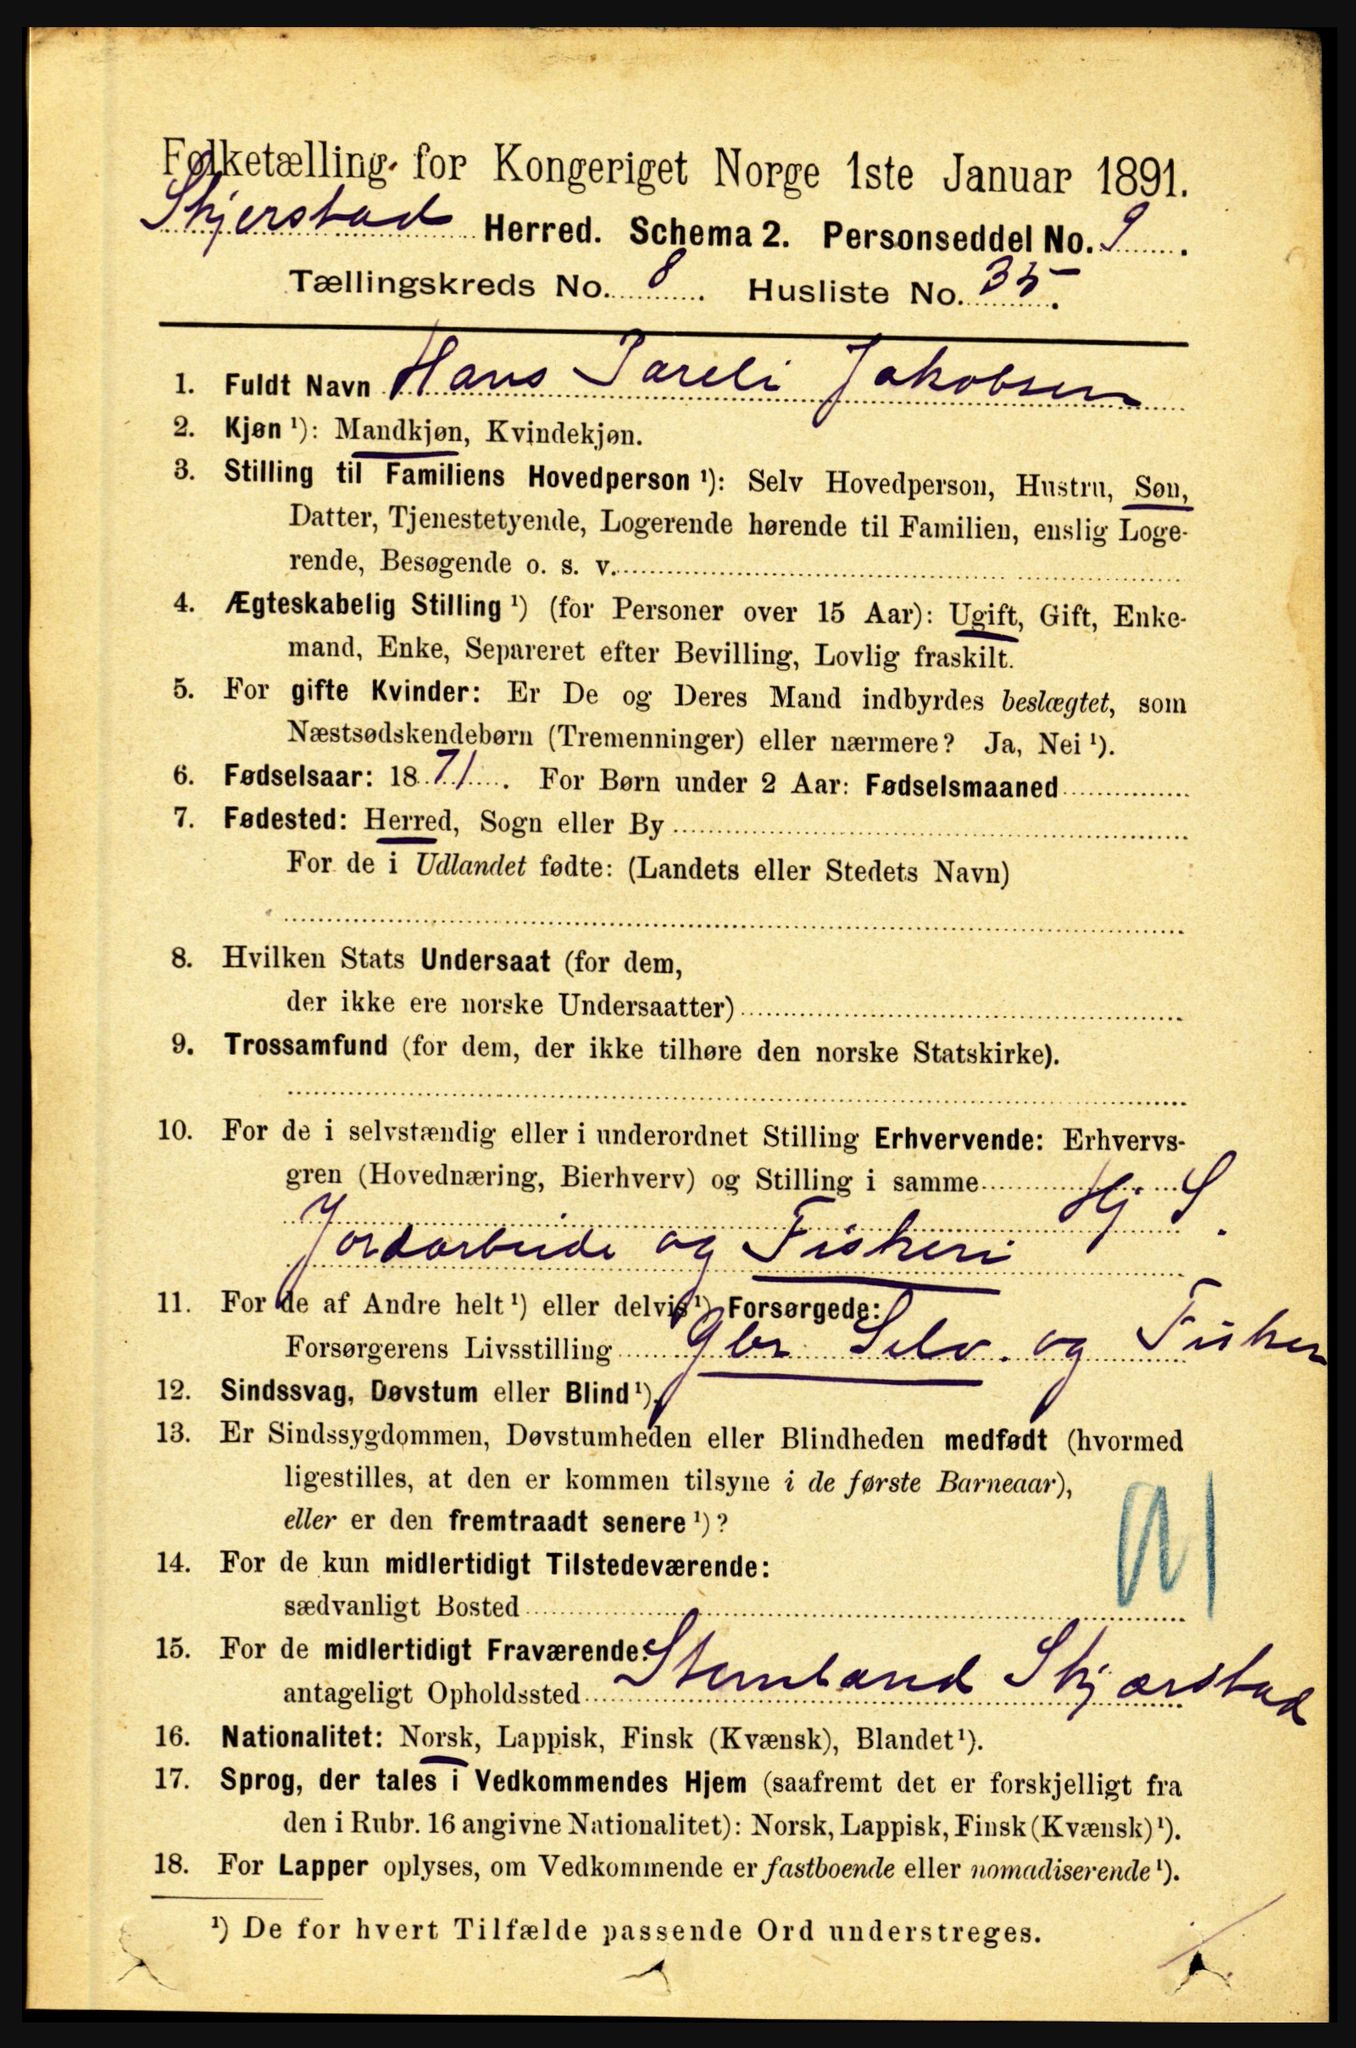 Folketælling for Kongeriget Norge 1ste Januar 1891.
Skjerstad Herred. Schema 2. Personseddel No. 9.
Tællingskreds No. 8. Husliste No. 35.
1. Fuldt Navn Hans Pareli Jakobsen
2. Kjøn ¹): Mandkjøn, Kvindekjøn.
3. Stilling til Familiens Hovedperson ¹): Selv Hovedperson, Hustru, Søn,
Datter, Tjenestetyende, Logerende hørende til Familien, enslig Loge-
rende, Besøgende o. s. v.
4. Ægteskabelig Stilling ¹) (for Personer over 15 Aar): Ugift, Gift, Enke-
mand, Enke, Separeret efter Bevilling, Lovlig fraskilt.
5. For gifte Kvinder: Er De og Deres Mand indbyrdes beslægtet, som
Næstsødskendebørn (Tremenninger) eller nærmere? Ja, Nei ¹).
6. Fødselsaar: 1871. For Børn under 2 Aar: Fødselsmaaned
7. Fødested: Herred, Sogn eller By
For de i Udlandet fødte: (Landets eller Stedets Navn)
8. Hvilken Stats Undersaat (for dem,
der ikke ere norske Undersaatter)
9. Trossamfund (for dem, der ikke tilhøre den norske Statskirke).
10. For de i selvstændig eller i underordnet Stilling Erhvervende: Erhvervs-
gren (Hovednæring, Bierhverv) og Stilling i samme Hj S.
Jordarbeide og Fiskeri
11. For de af Andre helt ¹) eller delvis ¹) Forsørgede:
Forsørgerens Livsstilling Gbr Selv. og Fisker
12. Sindssvag, Døvstum eller Blind ¹).
13. Er Sindssygdommen, Døvstumheden eller Blindheden medfødt (hvormed
ligestilles, at den er kommen tilsyne i de første Barneaar),
eller er den fremtraadt senere ¹)?
14. For de kun midlertidigt Tilstedeværende:
sædvanligt Bosted
15. For de midlertidigt Fraværende:
antageligt Opholdssted Skjærstad
16. Nationalitet: Norsk, Lappisk, Finsk (Kvænsk), Blandet ¹).
17. Sprog, der tales i Vedkommendes Hjem (saafremt det er forskjelligt fra
den i Rubr. 16 angivne Nationalitet): Norsk, Lappisk, Finsk (Kvænsk) ¹).
18. For Lapper oplyses, om Vedkommende er fastboende eller nomadiserende ¹).
¹) De for hvert Tilfælde passende Ord understreges.